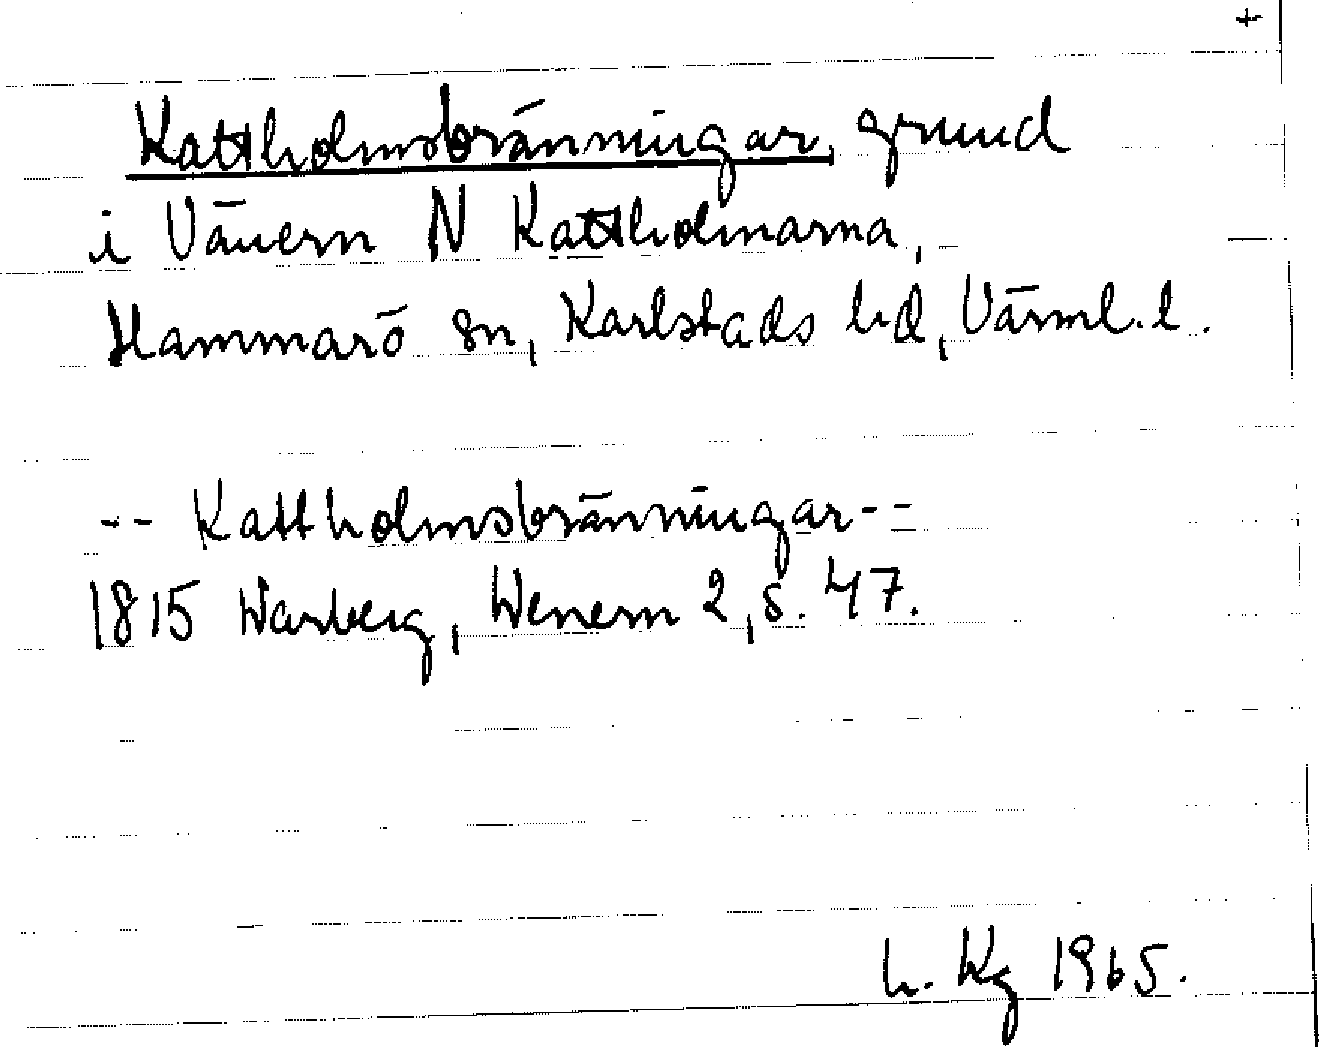 +
Kattholmsbränningar, grund
i Vänern N Kattholmarna,
Hammarö sn, Karlstads hd, Värml. l.
-- Kattholmsbränningar --
1815 Warberg, Wenern 2, s. 47.
L. Kg 1965.